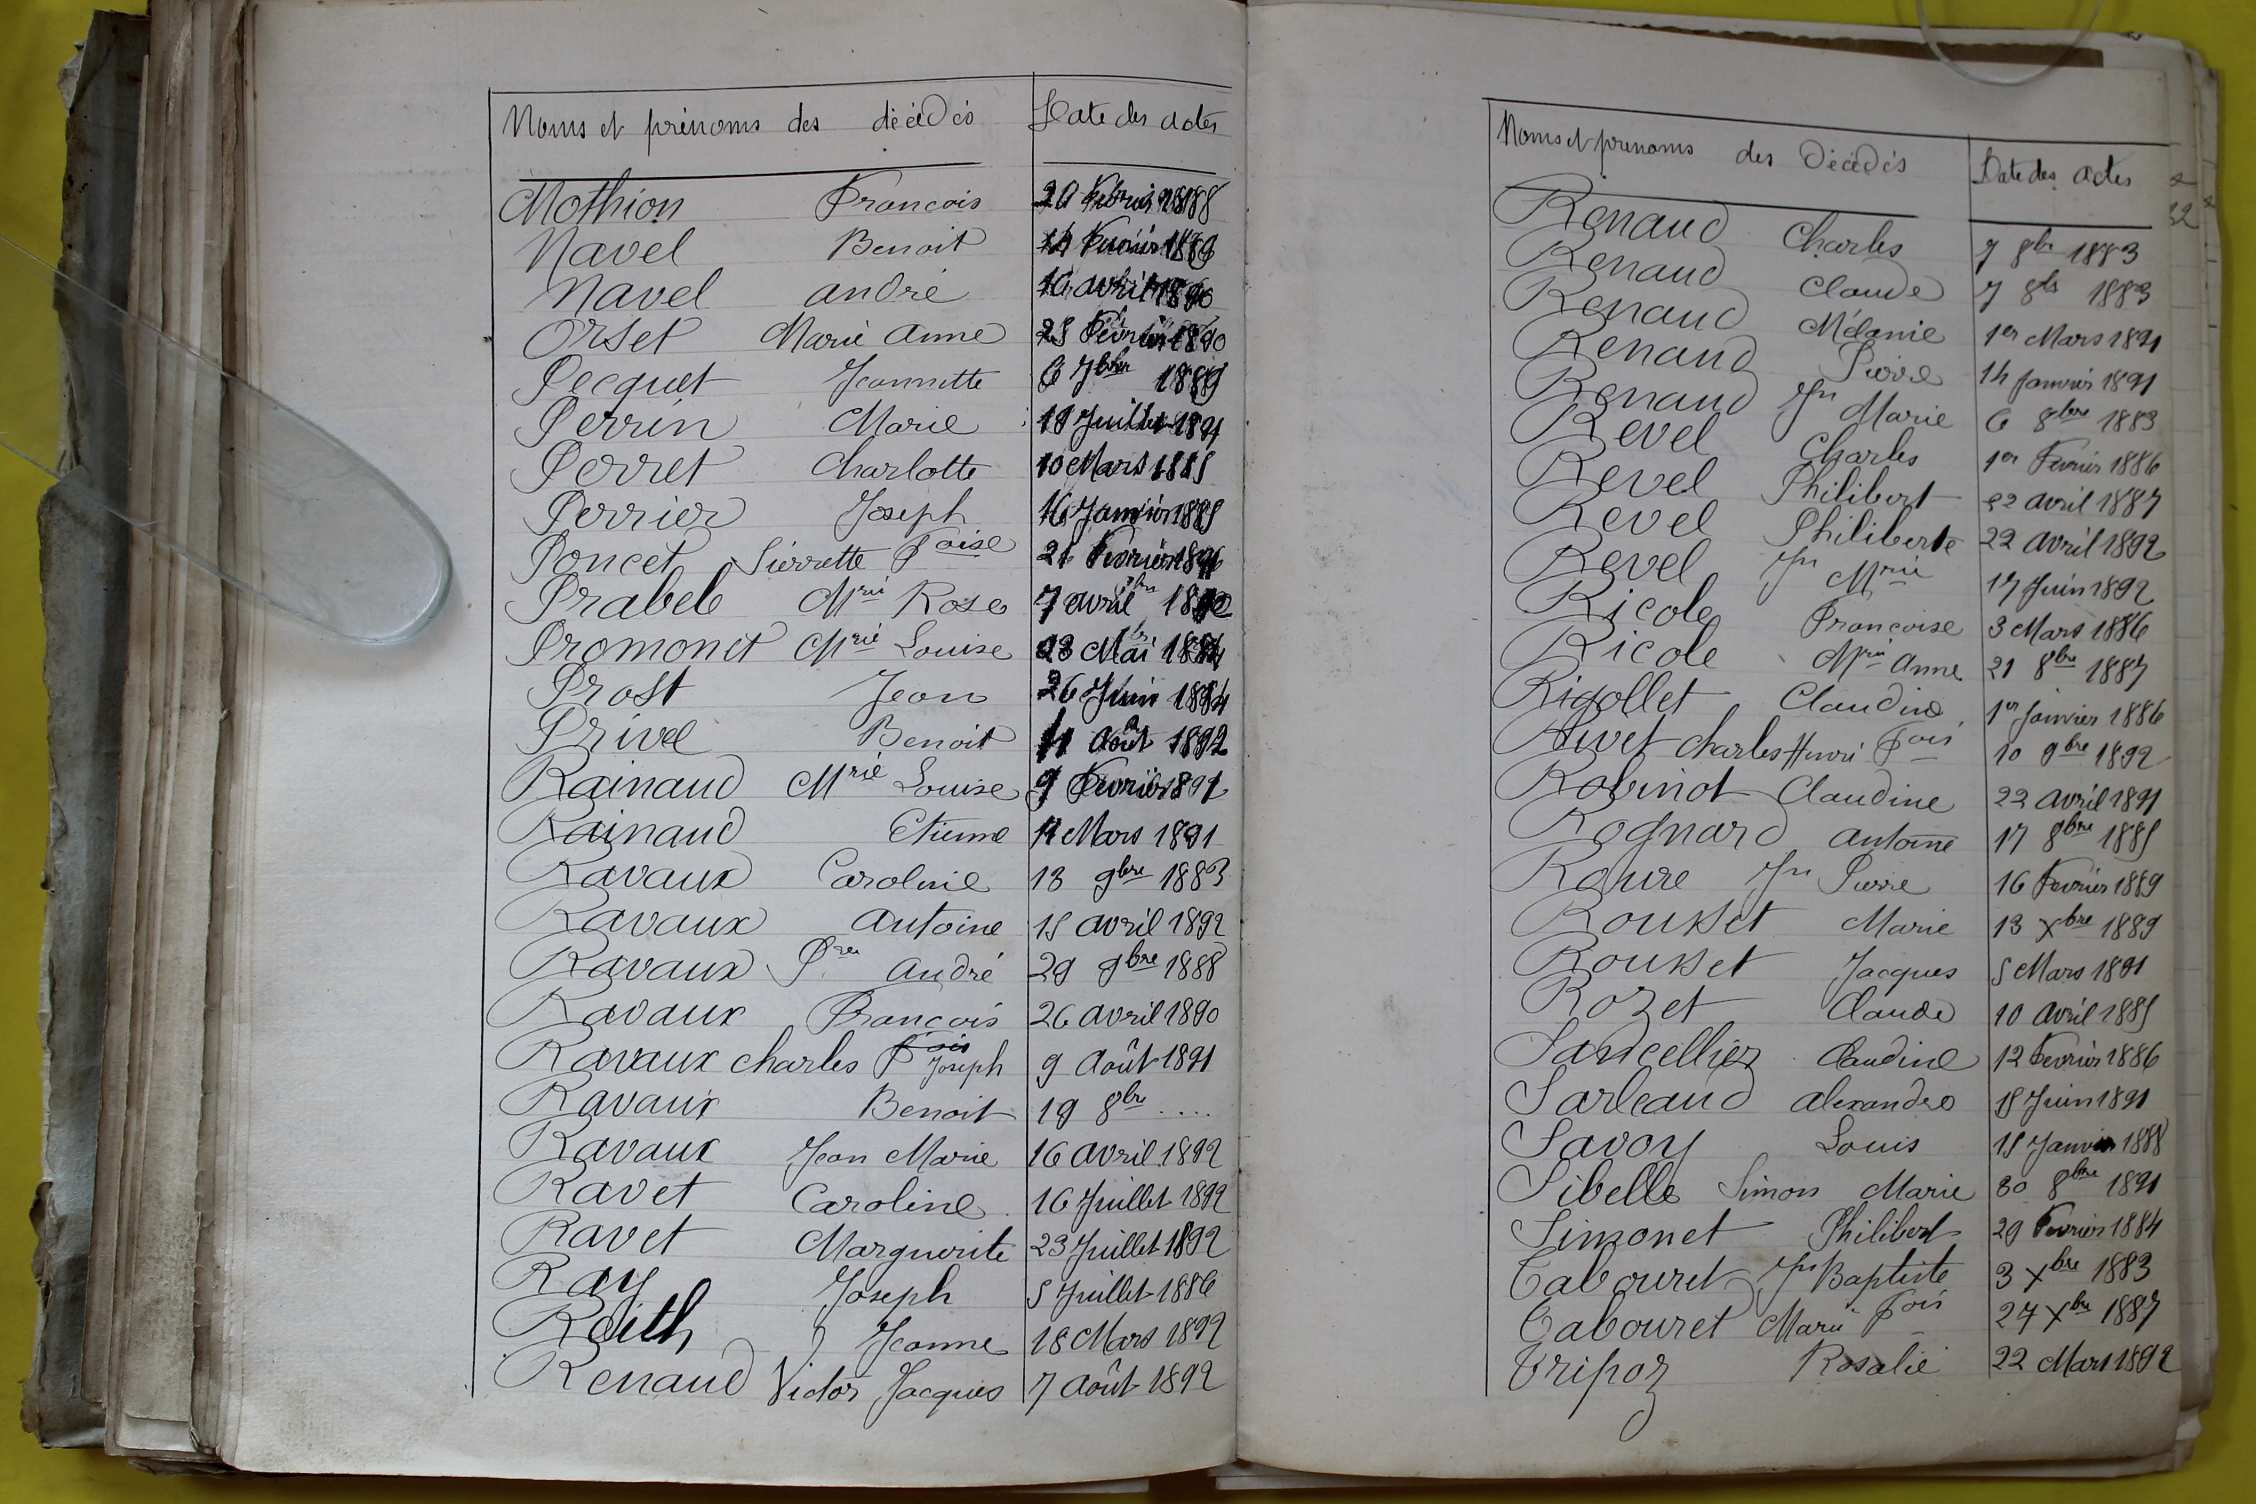 Noms et prénoms des décédés Date des actes
Mothion François 20 Février 1888
Navel Benoit 14 Février 1889
Navel André 16 avril 1890
Orset Marie Anne 25 Février 1890
Pecquet Jeannette 6 7bre 1889
Perrin Marie 18 Juillet 1891
Perret Charlotte 10 Mars 1885
Perrier Joseph 16 Janvier 1885
Poncet Pierrette Foise 21 Février
Prabel Mrie Rose 7
Promonet Mrie Louise 23 Mai
Prost Jean 26 Juin 1884
Privel Benoit 11 Août 1892
Rainaud Mrie Louise 9 Février 1891
Rainaud Etienne Mars 1891
Ravaux Caroline 13 9bre 1883
Ravaux Antoine 15 avril 1892
Ravaux Pre André 29 9bre 1888
Ravaux François 26 avril 1890
Ravaux Charles Fois Joseph 9 Août 1891
Ravaux Benoit 19 8bre ....
Ravaux Jean Marie 16 avril 1892
Ravet Caroline 16 Juillet 1892
Ravet Marguerite 23 Juillet 1892
Ray Joseph 5 Juillet 1886
Reith Jeanne 18 Mars 1892
Renaud Victor Jacques 7 Août 1892
Noms et prenoms des Décédés Date des actes
Renaud Charles 7 8bre 1883
Renaud Claude 7 8bre 1883
Renaud Mélanie 1er Mars 1891
Renaud Pierre 14 Janvier 1891
Renaud Jn Marie 6 8bre 1883
Revel Charles 1er Février 1886
Revel Philibert 22 avril 1887
Revel Philiberte 22 avril 1892
Revel Jn Mrie 17 Juin 1892
Ricole Françoise 3 Mars 1886
Ricole Mrie Anne 21 8bre 1887
Rigollet Claudine 1er Janvier 1886
Rivet Charles Henri Fois 10 9bre 1892
Robinot Claudine 22 avril 1891
Rognard Antoine 17 8bre 1885
Roure Jn Pierre 16 Février 1889
Rousset Marie 13 Xbre 1889
Rousset Jacques 5 Mars 1891
Rozet Claude 10 avril 1885
Sancellier Claudine 12 Février 1886
Sarleaud Alexandre 18 Juin 1891
Savoy Louis 15 Janvier 1888
Sibelle Simon Marie 30 8bre 1891
Simonet Philibert 29 Février 1884
Tabouret Jn Baptiste 3 Xbre 1883
Tabouret Marie Fois 27 Xbre 1887
Tripoz Rosalie 22 Mars 1892